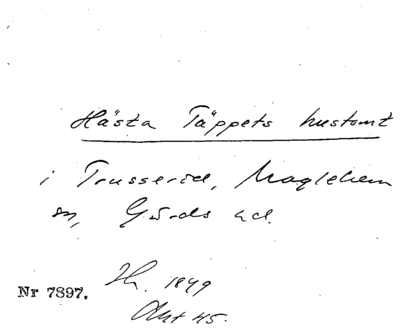 Hästa Täppets hustomt
i Trusserid, Maglehem
sn, Gärds hd.
Nr 7897.
Hr. 1849
Okt 45.